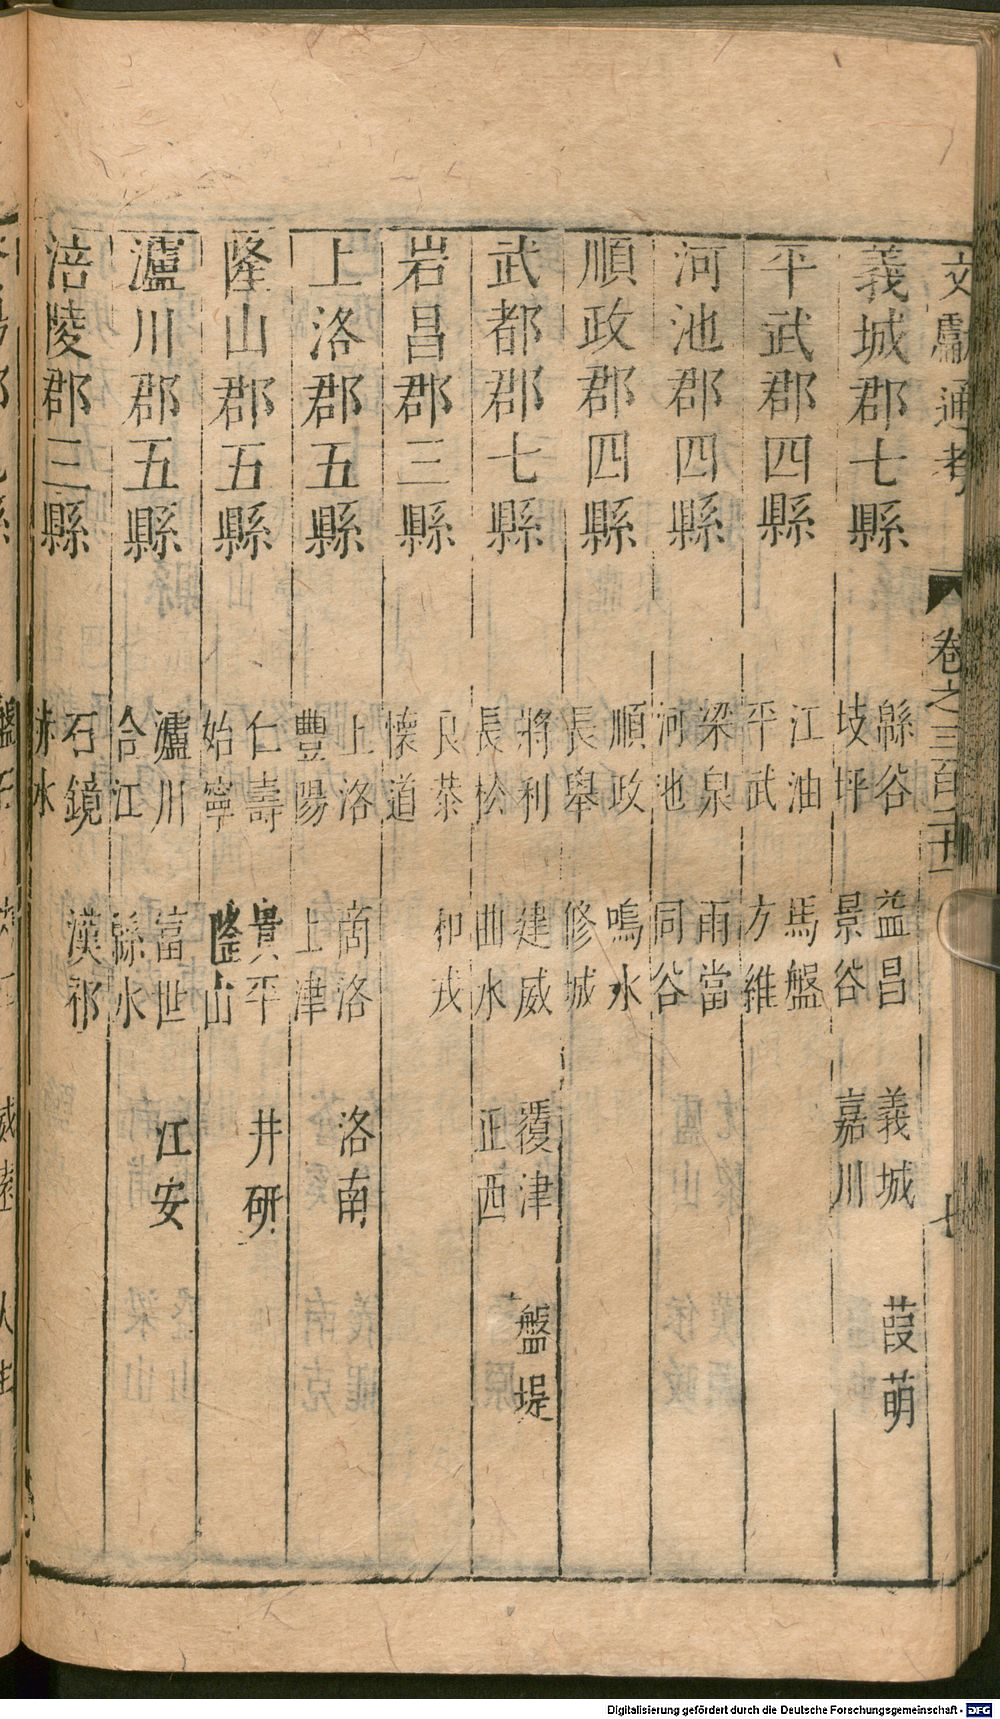 文獻通考 卷之三百二十二 七
義城郡七縣
緜谷 益昌 義城 葭萌
坺坪 景谷 嘉川
平武郡四縣
江油 馬盤
平武 方維
河池郡四縣
梁泉 兩當
河池 同谷
順政郡四縣
順政 鳴水
長舉 修城
武都郡七縣
將利 建威 覆津 盤堤
長松 曲水 正西
宕昌郡三縣
良恭 和戎
懷道
上洛郡五縣
上洛 商洛 洛南
豐陽 上津
隆山郡五縣
仁壽 貴平 井研
始寧 隆山
瀘川郡五縣
瀘川 富世 江安
合江 緜水
涪陵郡三縣
石鏡 漢初
赤水
Digitalisierung gefördert durch die Deutsche Forschungsgemeinschaft - DFG